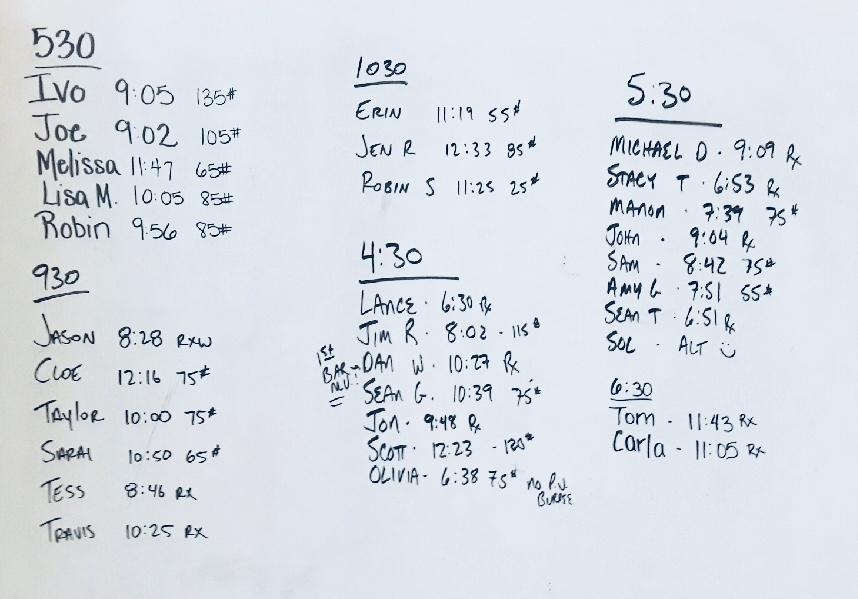 530
Ivo 9:05 135#
Joe 9:02 105#
Melissa 11:47 65#
Lisa M. 10:05 85#
Robin 9:56 85#
930
JASON 8:28 RXW
CLOE 12:16 75#
TAylor 10:00 75#
SARAH 10:50 65#
TESS 8:46 RX
TRAVIS 10:25 RX
1030
ERIN 11:19 55#
JEN R 12:33 85#
ROBIN S 11:25 25#
4:30
LANCE · 6:30 Rx
Jim R · 8:02 - 115#
1ST BAR M.U.! DAN W. 10:27 Rx
SEAN G. 10:39 75#
JON · 9:48 Rx
SCOTT · 12:23 - 120#
OLIVIA - 6:38 75# no P.U. BURPEE
5:30
MICHAEL D · 9:09 Rx
STACY T · 6:53 Rx
MANON · 7:39 75#
JOHN · 9:04 Rx
SAM - 8:42 75#
AMY G · 7:51 55#
SEAN T · 6:51 Rx
SOL · ALT
6:30
Tom - 11:43 RX
Carla - 11:05 RX